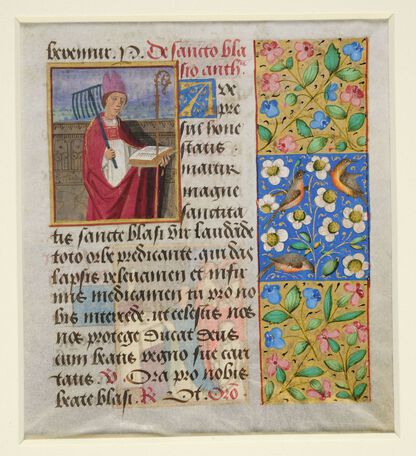 P. De sancto bla
sio anth.
Ave
pre
sul hone
statis
martir
magne
sanctita
tis sancte blasi vir laudāde
toto orbe predicante. qui das
lapsis relevamen et infir
mis medicamen tu pro no
bis intercede. ut celestis nos
nos protege ducat deus
cum beatis regno sue cari
tatis. V. Ora pro nobis
beate blasi. R. Ut. Orō